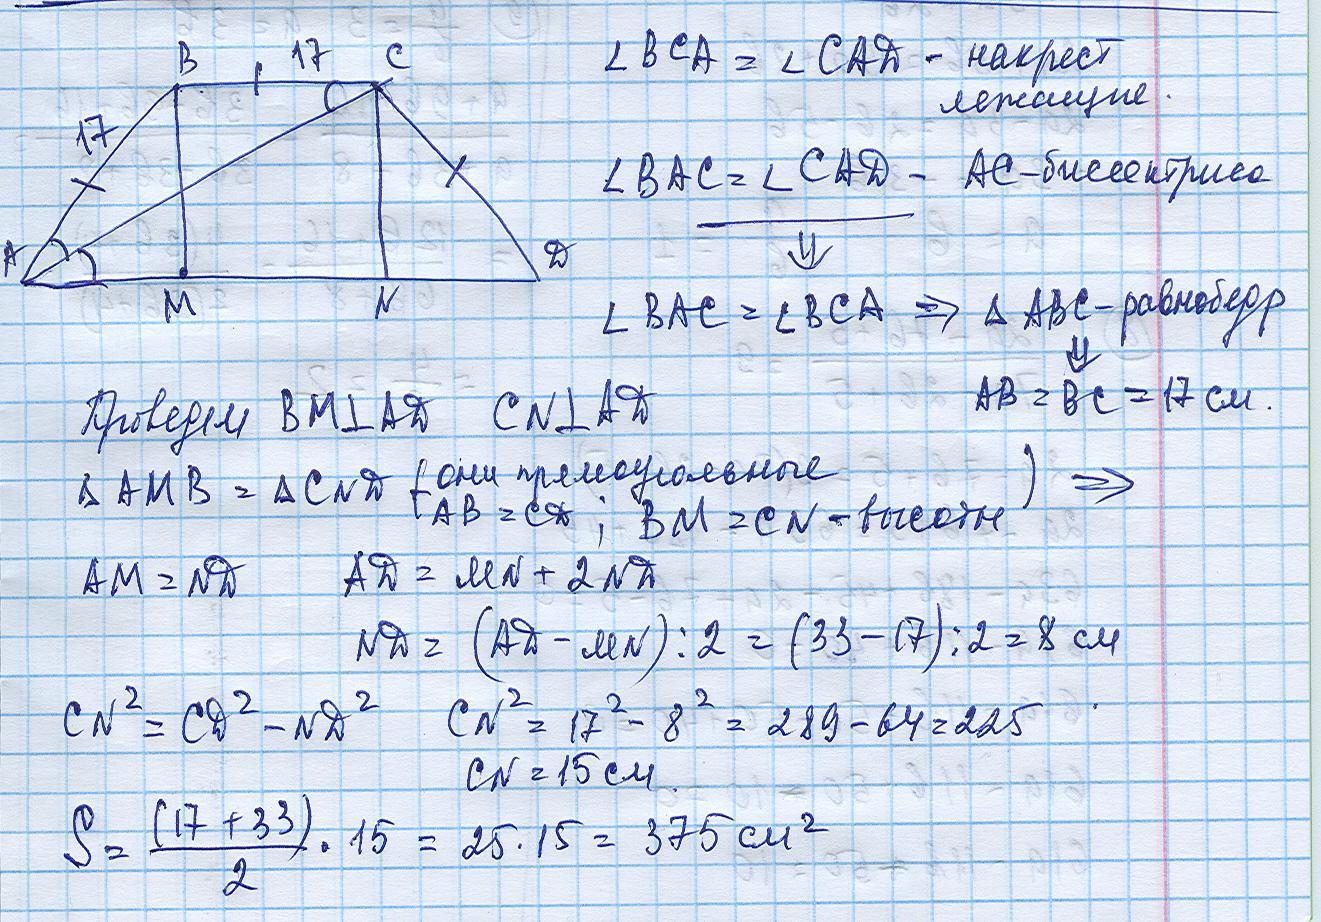 B 17 C
17
A
D
M
N
∠BCA = ∠CAD - накрест
лежащие.
∠BAC = ∠CAD - AC-биссектриса
⇓
∠BAC = ∠BCA ⇒ △ ABC-равнобедр
⇓
AB = BC = 17 см.
Проведем BM⊥AD CN⊥AD
△ AMB = △CND (они прямоугольные
AB = CD ; BM = CN - высоты) ⇒
AM = ND AD = MN + 2ND
ND = (AD - MN) : 2 = (33 - 17) : 2 = 8 см
CN² = CD² - ND² CN² = 17² - 8² = 289 - 64 = 225
CN = 15 см.
S = (17 + 33)/2 · 15 = 25 · 15 = 375 см²